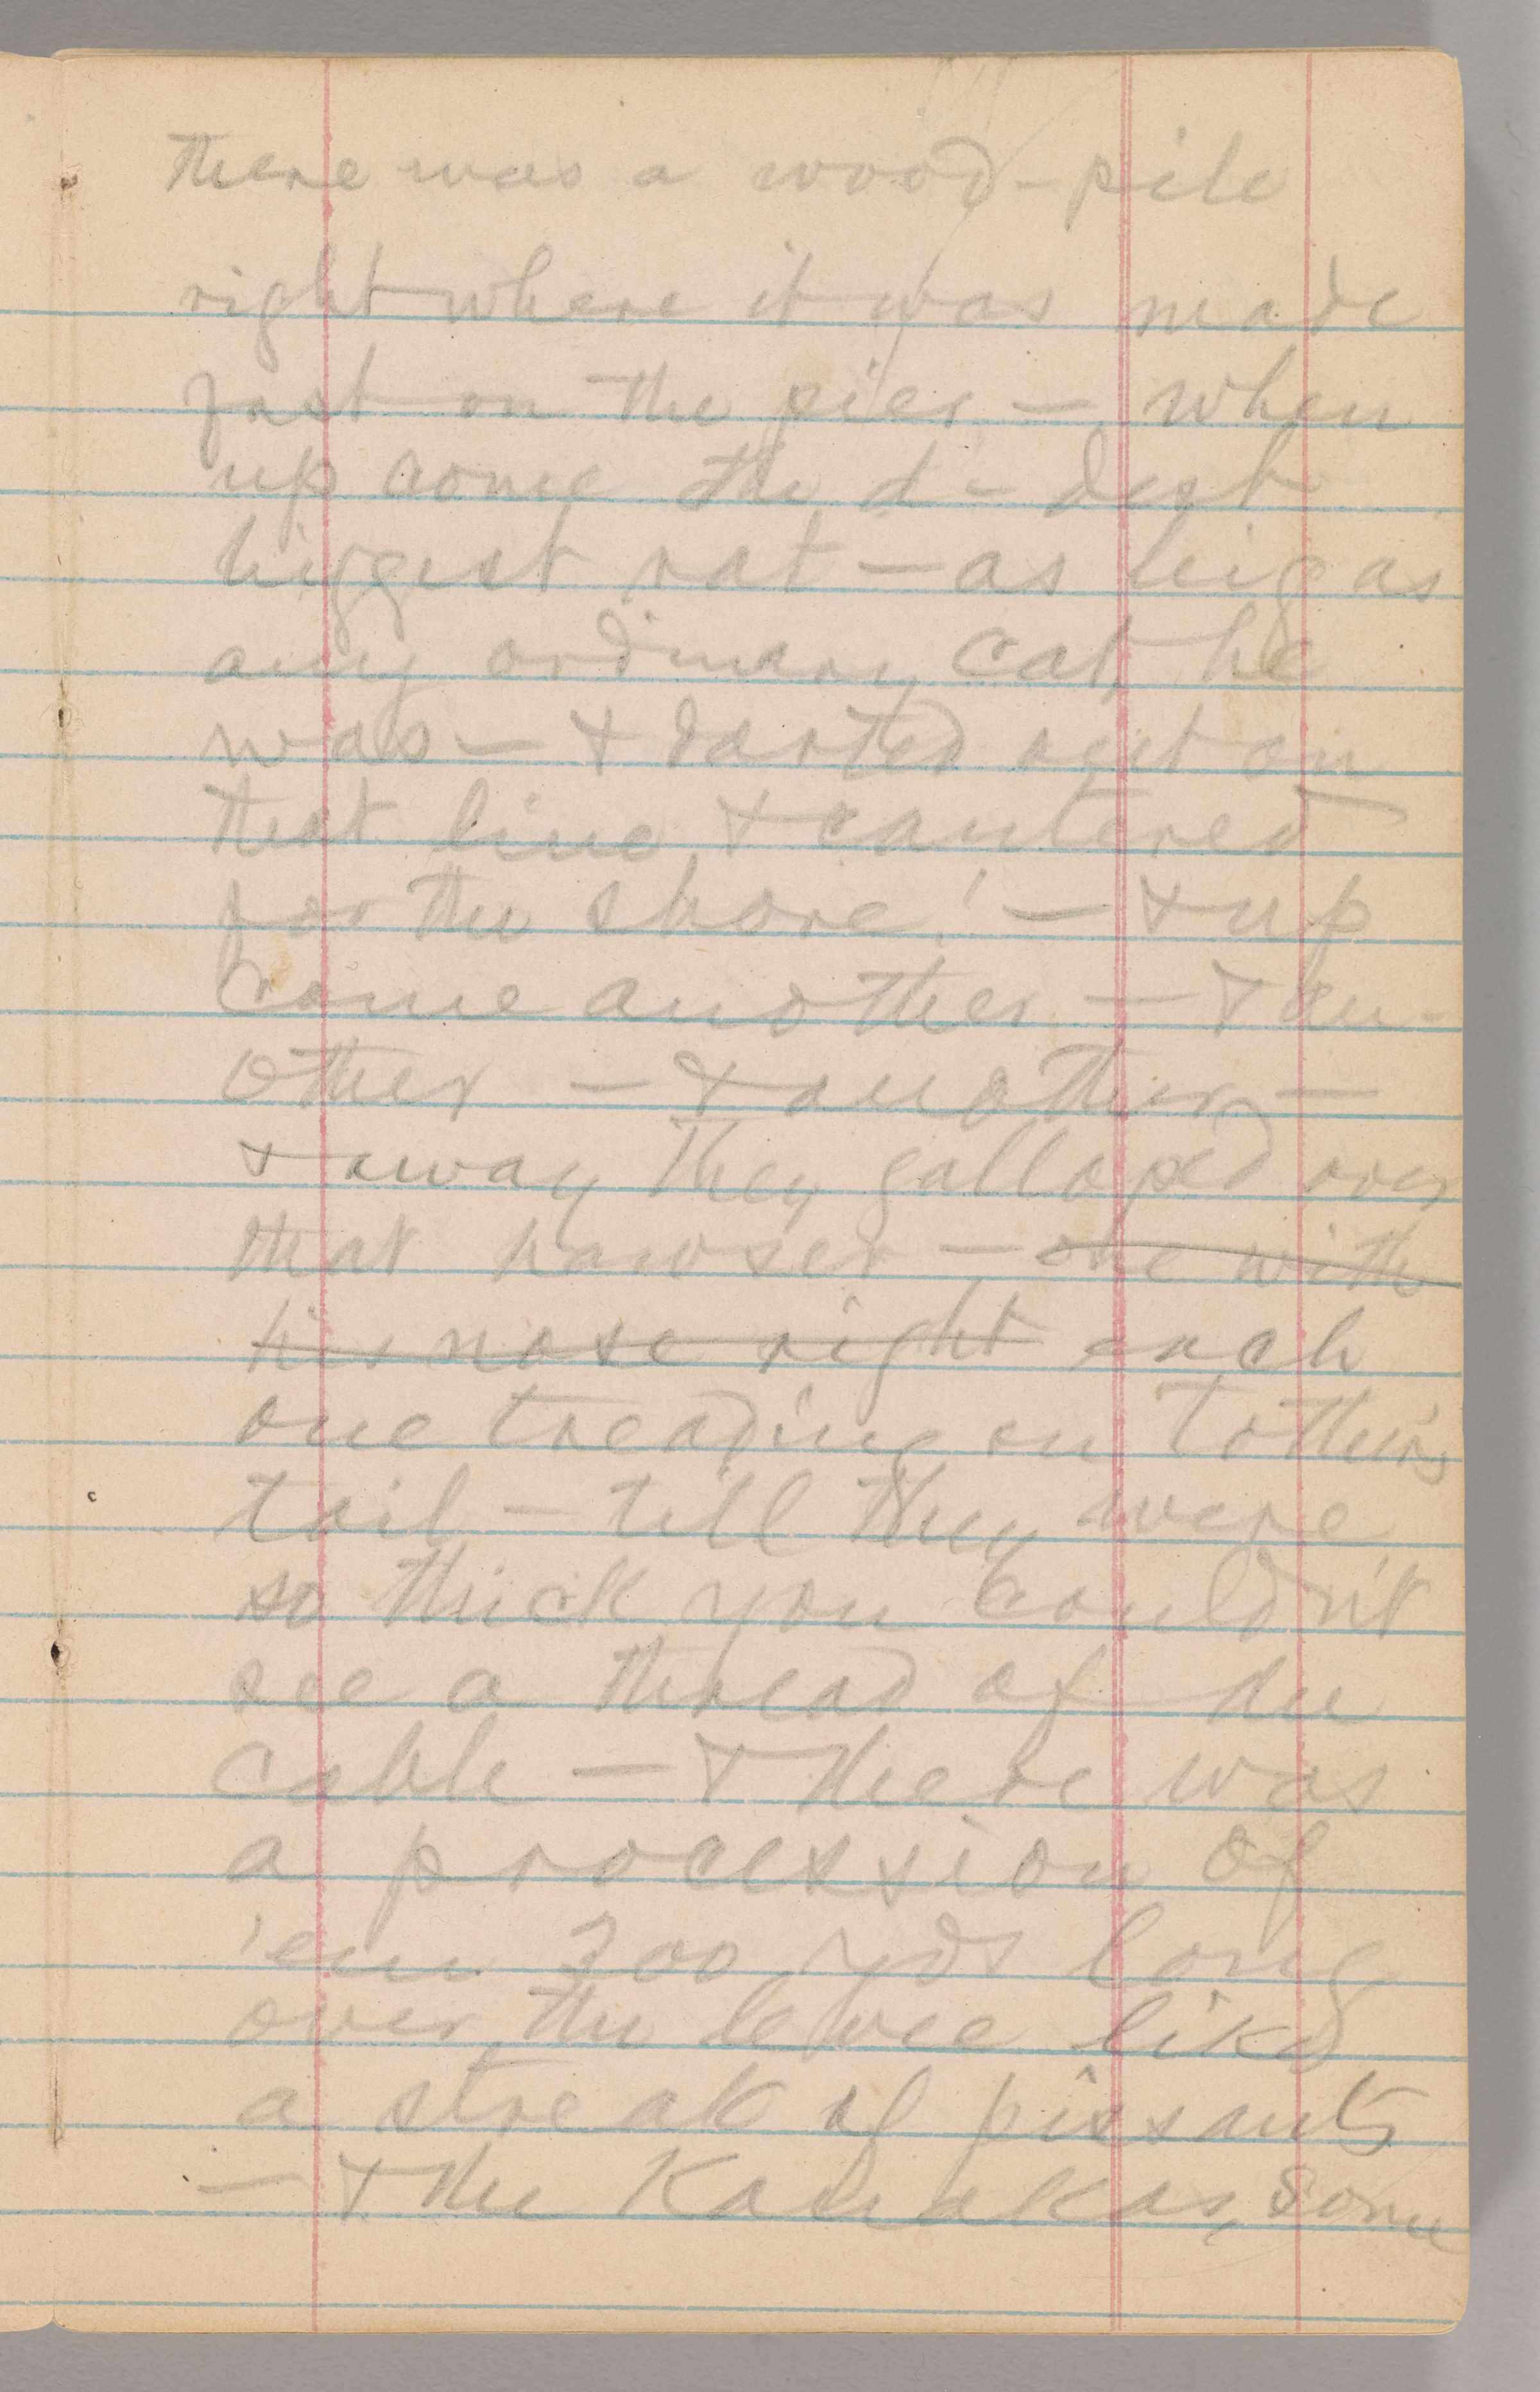 there was a wood-pile
right where it was made
fast on the pier, — when
up come the d—dest
biggest rat — as big as
any ordinary cat, he
was — & darted out on
that line & cantered
for the shore! — & up
come another — & an-
other — & another —
& away they galloped over
that hawser — one with
his nose right each
one treading on t'other's
tail — till they were
so thick you couldn't
see a thread of the
cable — & there was
a procession of
'em 300 yds long
over the levee like
a streak of pissants
— & the Kanakas, some